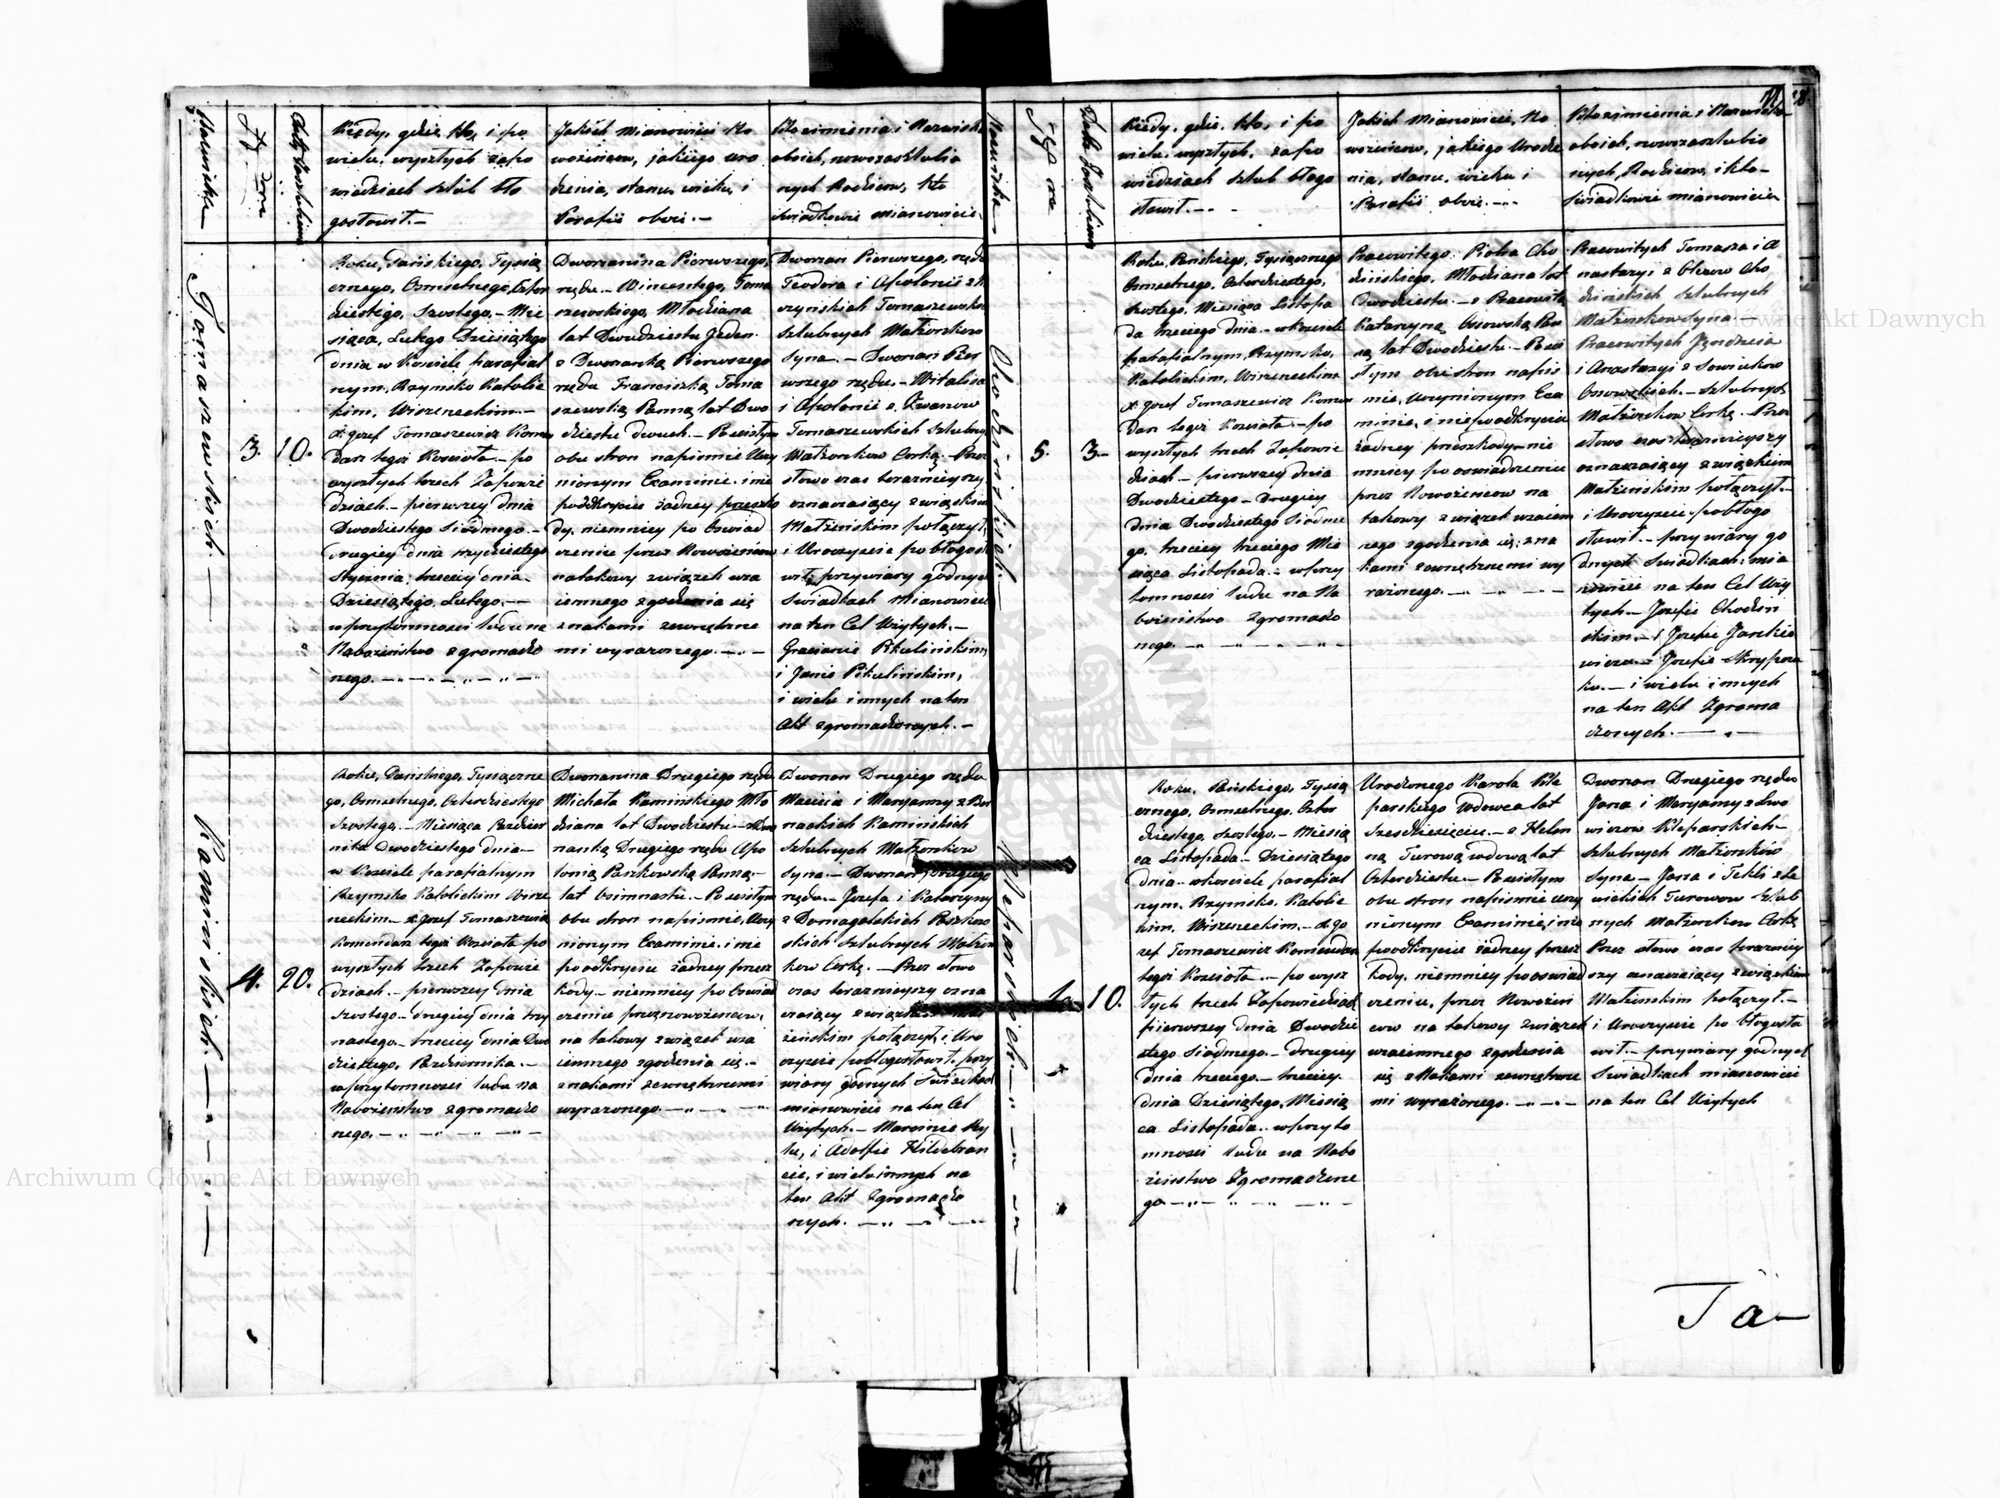 Nazwiska
Kiedy, gdzie, kto, i po
wielu, wyszłych zapo
wiedziach szlub bło
gosławił.—
Jakich mianowicie No
wożeńcow, jakiego uro
dzenia, stanu, wieku, i
Parafii obois.—
Kto z imienia i Nazwiska
oboich, nowozaszlubio
nych Rodzicow, kto
świadkowie mianowicie.
Tomaszewskich.—
3.
10.
Roku, Pańskiego, Tysią
cznego, Osmsetnego, Czter
dziestego, Szostego,— Mie
siąca, Lutego Dziesiątego
dnia w Kosciele parafial
nym, Rzymsko Katolic
kim, Wiszneckim.—
X. Jozef Tomaszewicz Komen
darz tegoż Kościoła.— po
wyszłych trzech Zapowie
dziach.— pierwszey dnia
Dwodziestego Siodmego.—
drugiey dnia trzydziestego
Stycznia, trzeciey dnia
Dziesiątego, Lutego.—
w przytomnosci ludu na
Nabożeństwo zgromadzo
nego.—
Dworzanina Pierwszego,
rzędu.— Wincentego, Toma
szewskiego, Młodziana
lat Dwudziestu Jeden.
z Dworzanką Pierwszego
rzędu Franciszką Toma
szewską Panną, lat Dwo
dziestu dwuch.— Po ścisłym
obu stron napismie Uczy
nionym Examinie. i nie
podkryciu żadney przeszko
dy, niemniey po Oswiad
czeniu przez Nowożeńcow
na takowy związek wza
iemnego zgodzenia się
znakami zewnętrzne
mi wyrażonego.—
Dworzan Pierwszego, rzędu
Teodora i Apolonii z K
czyńskich Tomaszewskich
Szlubnych Małżonkow
Syna.— Dworzan Pier
wszego rzędu.— Witalisa
i Apolonii z Iwanow
Tomaszewskich Szlubnych
Małżonkow Corkę.— Przez
słowo czas teraznieyszy
oznaczaiący związkiem
Małżeńskim połączył,
i Uroczyscie pobłogosła
wił, przy wiary godnych
Swiadkach Mianowicie
na ten Cel Użytych.—
Gracianie Pikulińskim,
i Janie Pikulińskim,
i wielu innych na ten
Akt zgromadzonych.—
Kamińskich.—
4.
20.
Roku, Pańskiego, Tysiączne
go, Osmsetnego, Czterdziestego
Szostego.— Miesiąca Pazdzier
nika Dwodziestego dnia—
w Kosciele parafialnym
Rzymsko Katolickim Wisz
neckim.— X. Jozef Tomaszewicz
Komendarz tegoż Kościoła po
wyszłych trzech Zapowie
dziach.— pierwszey dnia
Szostego.— drugiey dnia trzy
nastego.— trzeciey dnia Dwo
dziestego, Pazdziernika.—
w przytomnosci ludu na
Nabożeństwo zgromadzo
nego.—
Dworzanina Drugiego rzędu
Michała Kamińskiego Mło
dziana lat Dwodziestu— z Dwo
rzanką Drugiego rzędu Apo
lonią Paszkowską Panną.—
lat Osimnastu.— Po ścisłym
obu stron napismie, Uczy
nionym Examinie. i nie
poodkryciu żadney przesz
kody.— niemniey po Oswiad
czeniu przez nowożencow,
na takowy związek wza
iemnego zgodzenia się.—
znakami zewnętrznemi
wyrażonego.—
Dworzan Drugiego rzędu
Macieia i Maryanny z Bo
nackich Kamińskich
Szlubnych Małżonkow
Syna.— Dworzan, Drugiego
rzędu.— Jozefa i Katarzyny
z Domagalskich Paszkow
skich Szlubnych Małżon
kow Corkę.— Przez słowo
czas teraznieyszy ozna
czaiący związkiem Mał
żeńskim połączył, i Uro
czyscie pobłogosławił, przy
wiary godnych Swiadkach
mianowicie na ten Cel
Użytych.—
i Adolfie Hildebran
cie, i wielu innych na
ten Akt Zgromadzo
nych.—
Nazwiska
Kiedy, gdzie, kto, i po
wielu, wyszłych, zapo
wiedziach szlub błogo
sławił.—
Jakich Mianowicie, No
wożencow, jakiego Urodze
nia, stanu, wieku i
Parafii obois.—
Kto z imienia i Nazwiska
oboich, nowozaszlubio
nych, Rodzicow, i kto—
świadkowie mianowicie
Chodzińskich.—
5.
3.—
Roku, Pańskiego, Tysiącznego
Osmsetnego, Czterdziestego,
Szostego. Miesiąca Listopa
da trzeciego dnia.— w Kosciele
parafialnym, Rzymsko,
Katolickim, Wiszneckim
X. Jozef Tomaszewicz Komen
darz tegoż Koscioła.— po
wyszłych trzech Zapowie
dziach.— pierwszey dnia
Dwodziestego.— Drugiey
dnia Dwodziestego Siodme
go. trzeciey trzeciego Mie
siąca Listopada.— w przy
tomnosci ludu na Na
bożeństwo Zgromadzo
nego.—
Pracowitego. Piotra Cho
dzińskiego, Młodziana lat
Dwodziestu.— z Pracowitą
Katarzyną Osowską Pan
ną, lat Dwodziestu.— Po ści
słym obu stron napis
mie, Uczynionym Exa
minie, i niepoodkryciu
żadney przeszkody.— nie
mniey po oswiadczeniu
przez Nowożencow na
takowy związek wzaiem
nego zgodzenia się; zna
kami zewnętrznemi wy
rażonego.—
Pracowitych Tomasza i A
nastazyi z Cho
dzińskich Szlubnych
Małżonkow Syna.—
Pracowitych Jędrzeia
i Anastazyi z
Osowskich.— Szlubnych
Małżonkow Corkę.— Przez
słowo czas teraznieyszy
oznaczaiący związkiem
Małżeńskim połączył.—
i Uroczyscie pobłogo
sławił.— przy wiary go
dnych Swiadkach: mia
nowicie na ten Cel Uży
tych.— Jozefie Chodzin
skim.— i Jozefie Jankie
wiczu.— i Jozefie Skrypcza
ku.— i wielu innych
na ten Akt Zgroma
dzonych.—
Kleparskich.—
6.
10.
Roku, Pańskiego, Tysią
cznego, Osmsetnego, Czter
dziestego, Szostego.— Miesią
ca Listopada.— Dziesiątego
dnia.— w Kosciele parafial
nym, Rzymsko, Katolic
kim, Wiszneckim.— X. Jo
zef Tomaszewicz Komendarz
tegoż Kosciola.— po wysz
łych trzech Zapowiedziach,
pierwszey dnia Dwodzie
stego Siodmego.— drugiey
dnia trzeciego.— trzeciey.
dnia Dziesiątego, Miesią
ca Listopada.. w przyto
mnosci ludu na Nabo
żeństwo Zgromadzone
go.—
Urodzonego Karola Kle
parskiego Wdowca lat
Szesdziesięciu.— z Helen
ną Turową wdową lat
Czterdziestu.— Po ścisłym
obu stron napismie uczy
nionym Examinie, i nie
poodkryciu żadney przesz
kody. niemniey po oswiad
czeniu, przez Nowożen
cow na takowy Związek
wzaiemnego zgodzenia
się znakami zewnętrzne
mi wyrażonego.—
Dworzan Drugiego rzędu
Jana i Maryanny z Lwo
wiczow Kleparskich—
Szlubnych Małżonków
Syna.— Jana i Tekli z Le
wickich Turowow Szlub
nych Małżonkow Corkę
Przez słowo czas terazniey
szy oznaczaiący związkiem
Małżenskim połączył.—
i Uroczyscie pobłogosła
wił.— przy wiary godnych
Swiadkach mianowicie
na ten Cel Użytych
Ta—
Archiwum Główne Akt Dawnych
Archiwum Główne Akt Dawnych